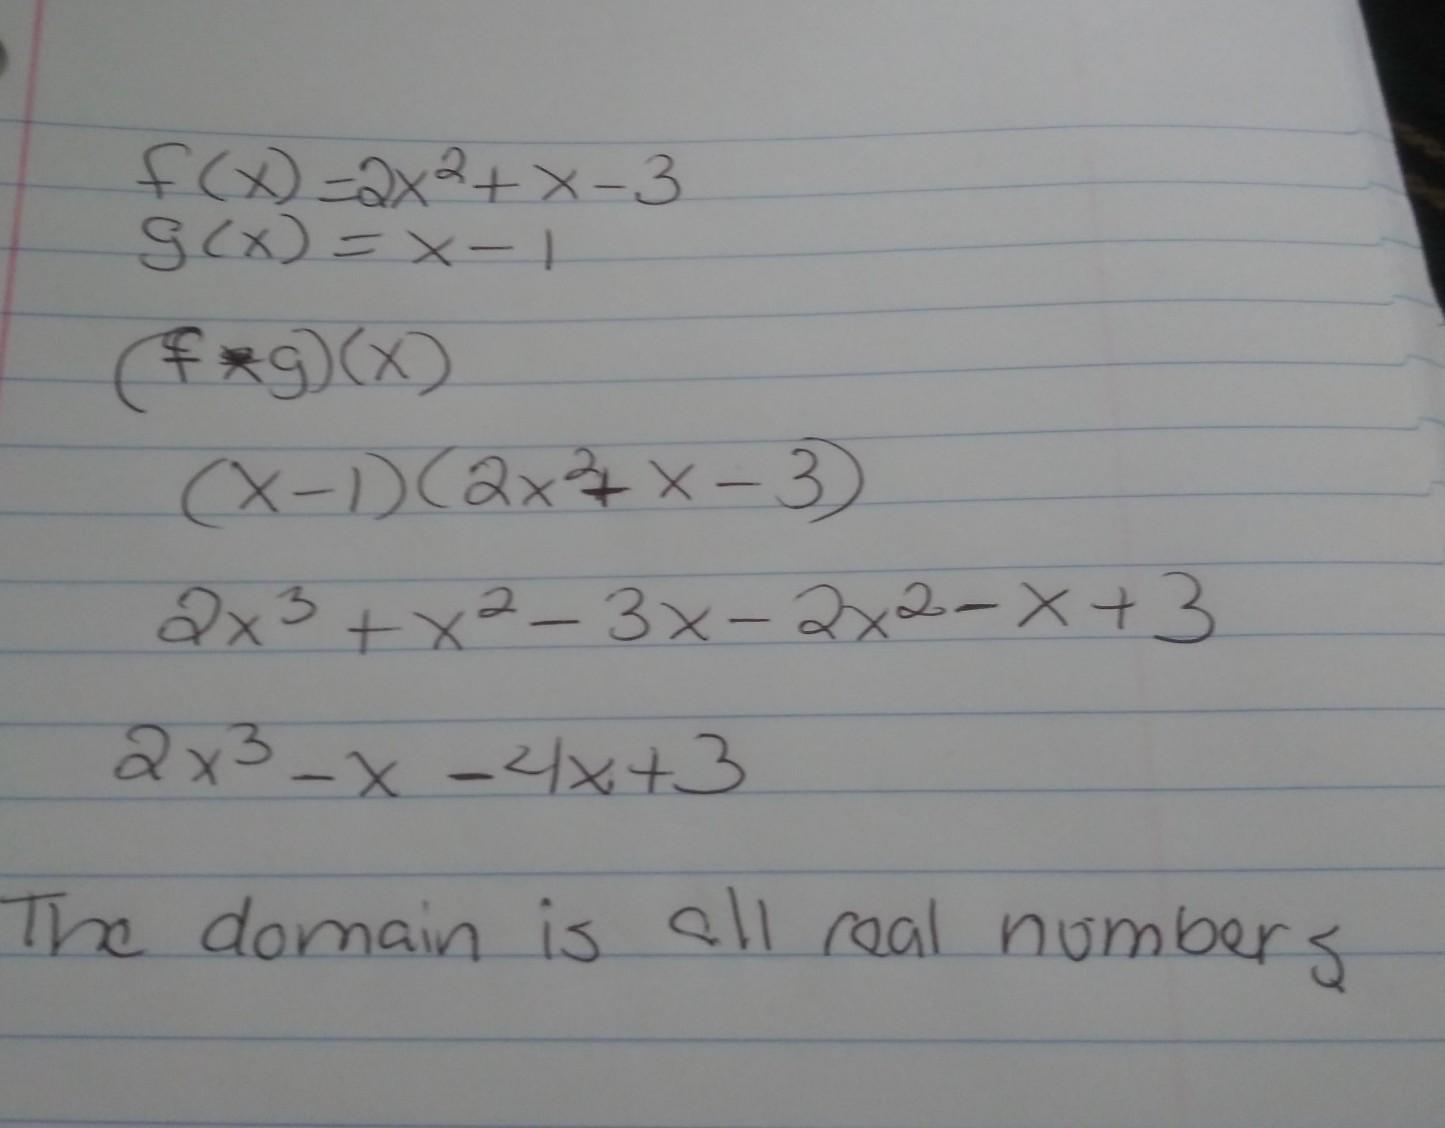 f(x)=2x²+x-3
g(x)=x-1
(f*g)(x)
(x-1)(2x²+x-3)
2x³+x²-3x-2x²-x+3
2x³-x-4x+3
The domain is all real numbers